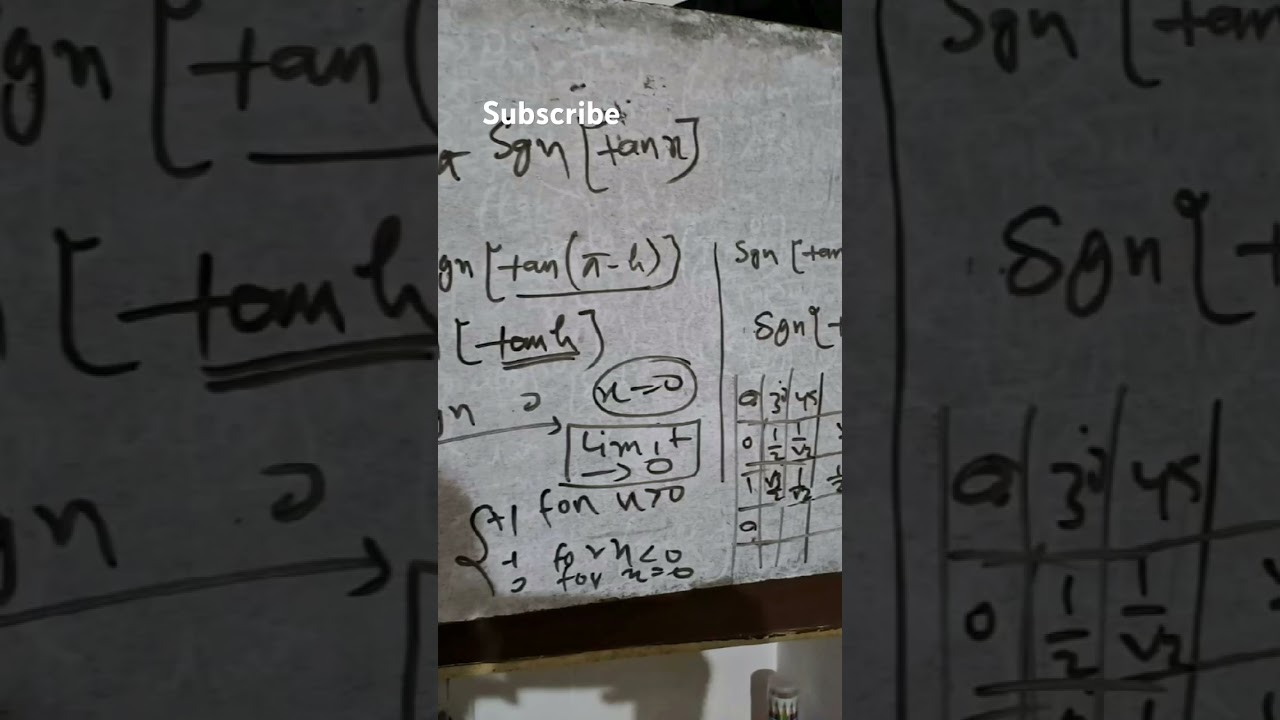 Subscribe
Sgn [tan x]
gn [tan(π-h)]
[-tan h]
x→0
gn 0
Limit
→0
+1 for x>0
-1 for x<0
0 for x=0
Sgn [tan
Sgn [-t
0 30 45
0 1/2 1/√2
1 √3/2 1/√2
0